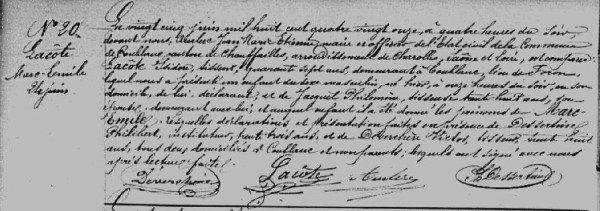 N° 20.
Lacôte
Marc-Emile
Le vingt cinq juin mil huit cent quatre vingt onze, à quatre heures du soir,
devant nous, Jean Marie Etienne, maire et officier de l'Etat civil de la Commune
de Coublanc, canton de Chauffailles, arrondissement de Charolles, Saône et Loire, est comparu
Lacôte tisseur, quarante sept ans, demeurant à Coublanc, lieu de
lequel nous a présenté un enfant du sexe masculin, né hier, à onze heures du soir, en son
domicile, de lui déclarant, et de Jacquet Philomène, tisseuse, trente huit ans, son
épouse, demeurant avec lui; et auquel enfant il a été donné les prénoms de Marc-
Emile, lesquelles déclaration et présentation faites en présence de Dessertine
Philibert, instituteur, trente trois ans, et de Victor, tisseur, trente huit
ans, tous deux domiciliés à Coublanc et non parents; lesquels ont signé avec nous
après lecture faite.
Lacôte